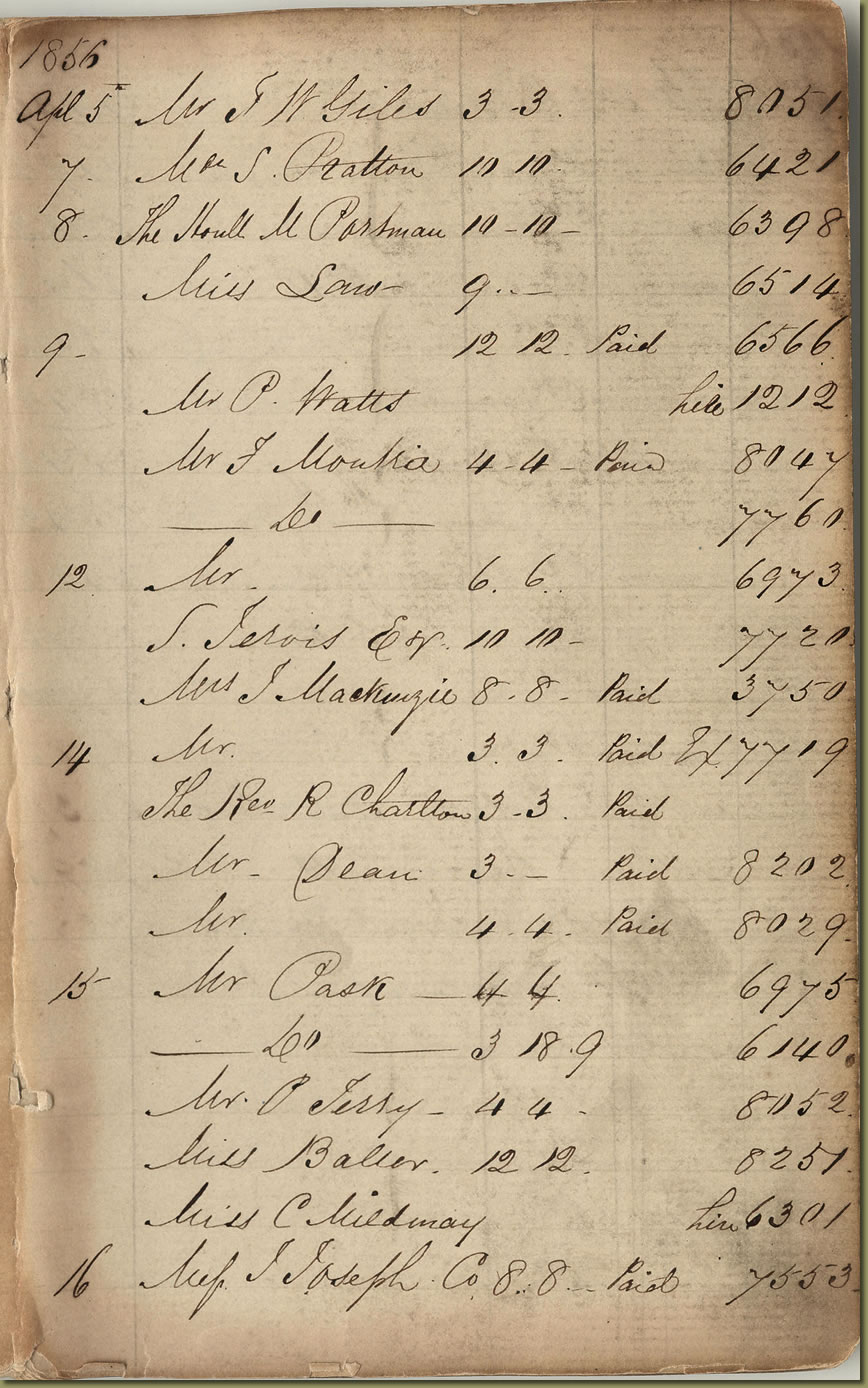 1856
Apl 5 Mr T W Giles 3 - 3 . 8051.
7. Mrs S. Pratton 10 10. 6421
8. The Honll M Portman 10 - 10 - 6398
Miss Law 9 . . — 6514
9 - 12 12. Paid 6566.
Mr P. Watts hire 1212
Mr F 4 - 4 - Paid 8047
—— Do —— 7760.
12. Mr. 6. 6. 6973.
S. Jervis Esq. 10 10 - 7720.
Mrs J Mackenzie 8 . 8 - Paid 3750
14 Mr. 3. 3. Paid Ex 7719
The Rev R Charlton 3 - 3 . Paid
Mr - Dean 3 . - Paid 8202.
Mr. 4 . 4 . Paid 8029.
15 Mr Pask — 4 4. 6975
—— Do —— 3 18 . 9 6140.
Mr. P Terry - 4 4 - 8052.
Miss Balser. 12 12. 8251.
Miss C Mildmay hire 6301
16 Mess J Joseph Co 8 . 8 - Paid 7553.